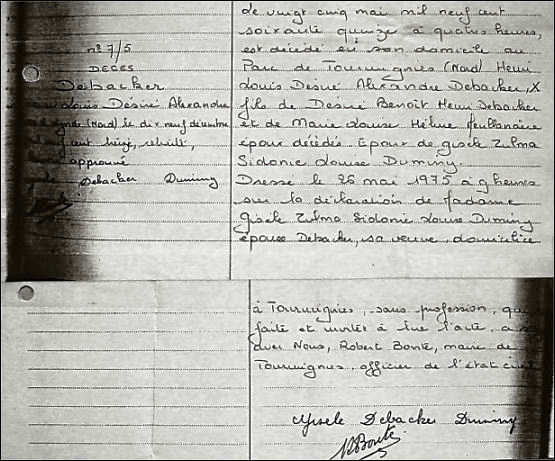 n° 7/5
DECES
Debacker
Louis Désiré Alexandre
(Nord) le dix neuf décembre
cent seize, retraité,
approuvé
Debacker Duminy
de vingt cinq mai mil neuf cent
soixante quinze à quatre heures,
est décédé en son domicile au
Parc de Tourmignies (Nord) Henri
Louis Désiré Alexandre Debacker, X
fils de Désiré Benoît Henri Debacker
et de Marie Louise Hélène
époux décédés. Epoux de Gisèle Zulma
Sidonie Louise Duminy.
Dressé le 26 mai 1975 à 9 heures
sur la déclaration de Madame
Gisèle Zulma Sidonie Louise Duminy
épouse Debacker, sa veuve, domiciliée
à Tourmignies, sans profession, qui
faite et invitée à lire l'acte, a
avec Nous, Robert Bonte, maire de
Tourmignies, officier de l'état civil
Gisele Debacker Duminy
RBonte